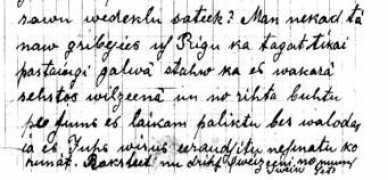 sawu wedeklu sateek? Man nekad tā
naw gribejies uf Rigu ka tagat tikai
pastaigi galwā stahw ka es wakarā
sehstos wilzeenā un no rihta buhtu
pee Jums es laikam paliktu bes waloda,
ja es Juhs wisus eeraudsitu nesinatu ko
runāt. Raksteet nu drihs